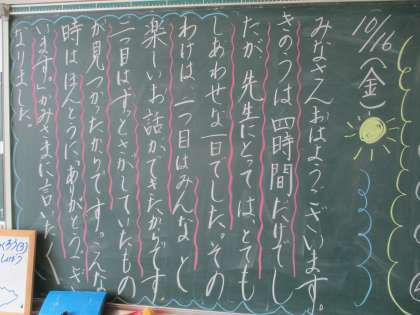 10/16(金)
みなさんおはようございます。
きのうは四時間だけでし
たが、先生にとっては、とても
しあわせな一日でした。その
わけは、一つ目はみんなとし
楽しいお話ができたからです。
二つ目はずっとさがしていたもの
が見つかったからです。こんな
時はほんとうに「ありがとうござ
います。」かみさまに言いた
なりました。